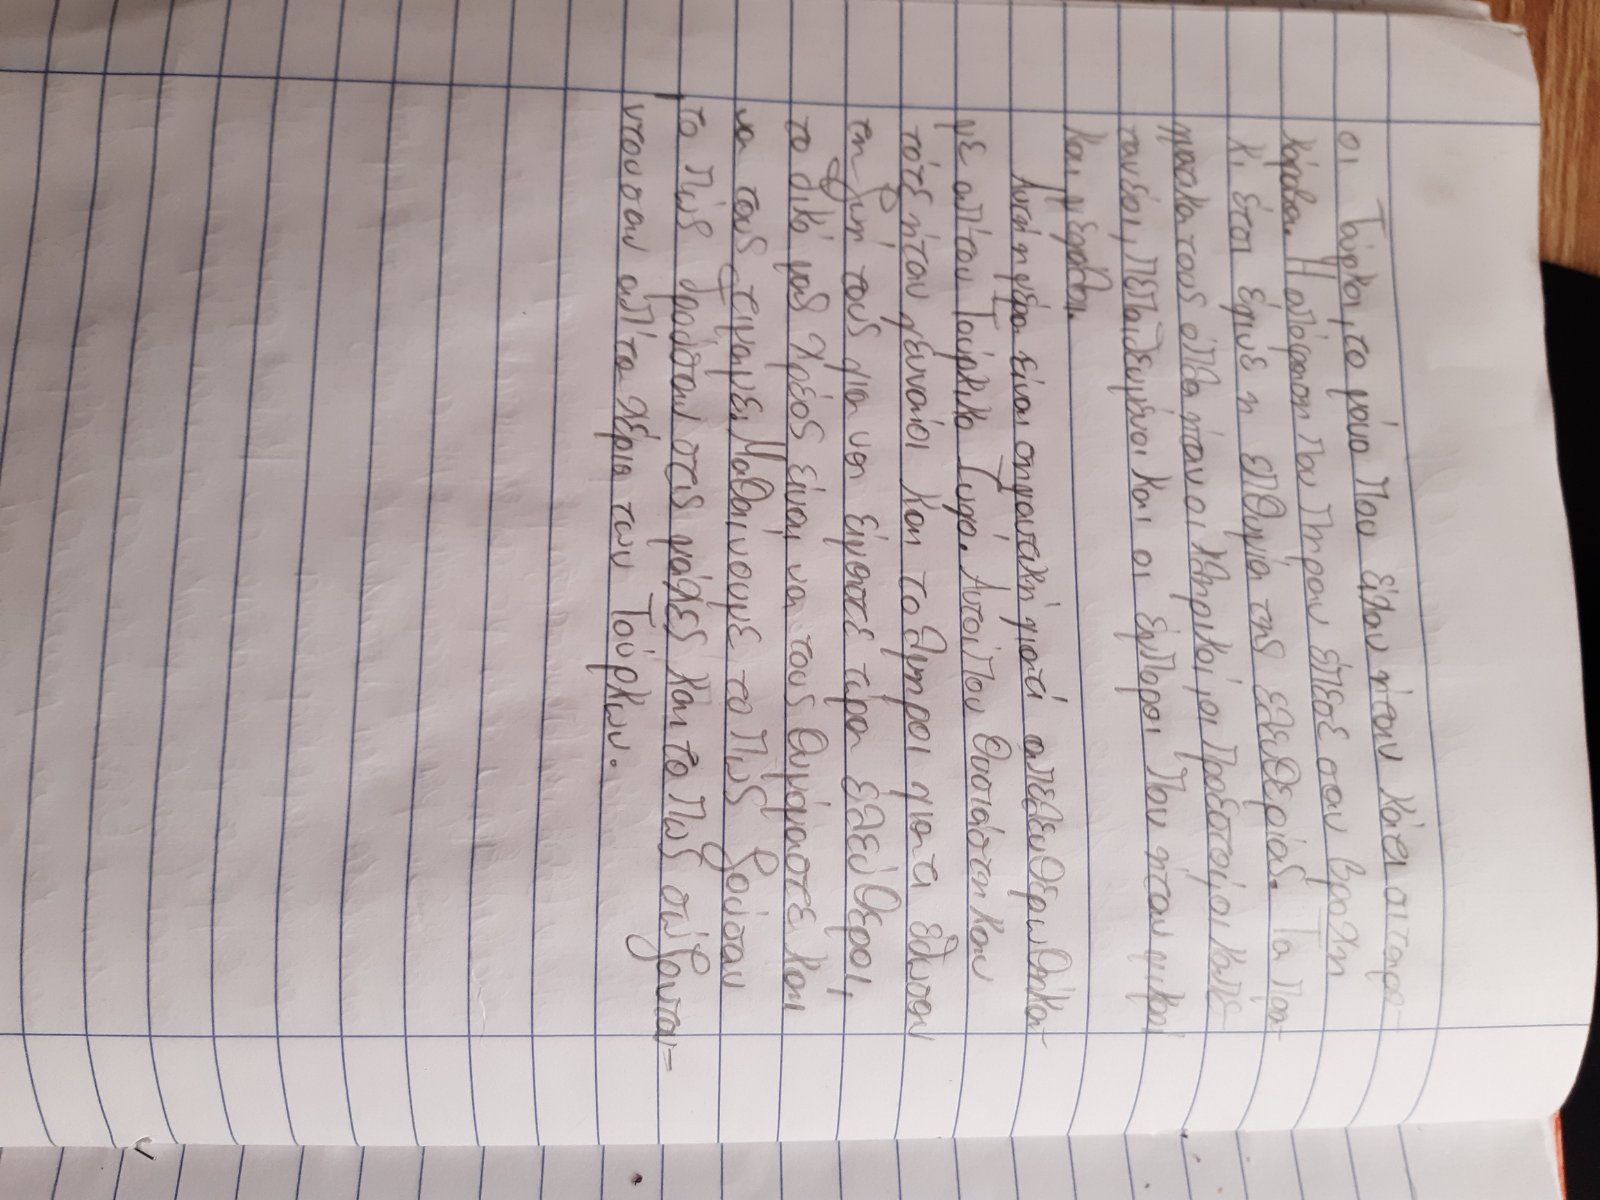 οι Τούρκοι, το μόνο που είχαν ήταν κάτι σιταρο-
κάραβα. Η απόφαση που πήραν έπεσε σαν βροχή
κι έτσι έγινε η επιθυμία της ελευθερίας. Τα πρό-
σωπα τους όπλα ήταν οι κληρικοί, οι προεστοί, οι καπε-
τανέοι, πεπαιδευμένοι και οι έμποροι που ήταν μικροί
και μεγάλοι.
Αυτή η μέρα είναι σημαντική γιατί απελευθερωθήκα-
με απ' τον Τούρκικο ζυγό. Αυτοί που θυσιάστηκαν
τότε ήταν γενναίοι και τολμηροί γιατί έδωσαν
τη ζωή τους για να είμαστε τώρα ελεύθεροι,
το δικό μας χρέος είναι να τους θυμόμαστε και
να τους τιμάμε. Μαθαίνουμε το πως ζούσαν
το πως δρούσαν στις μάχες και το πως σώζονταν-
ντουσαν απ' τα χέρια των Τούρκων.